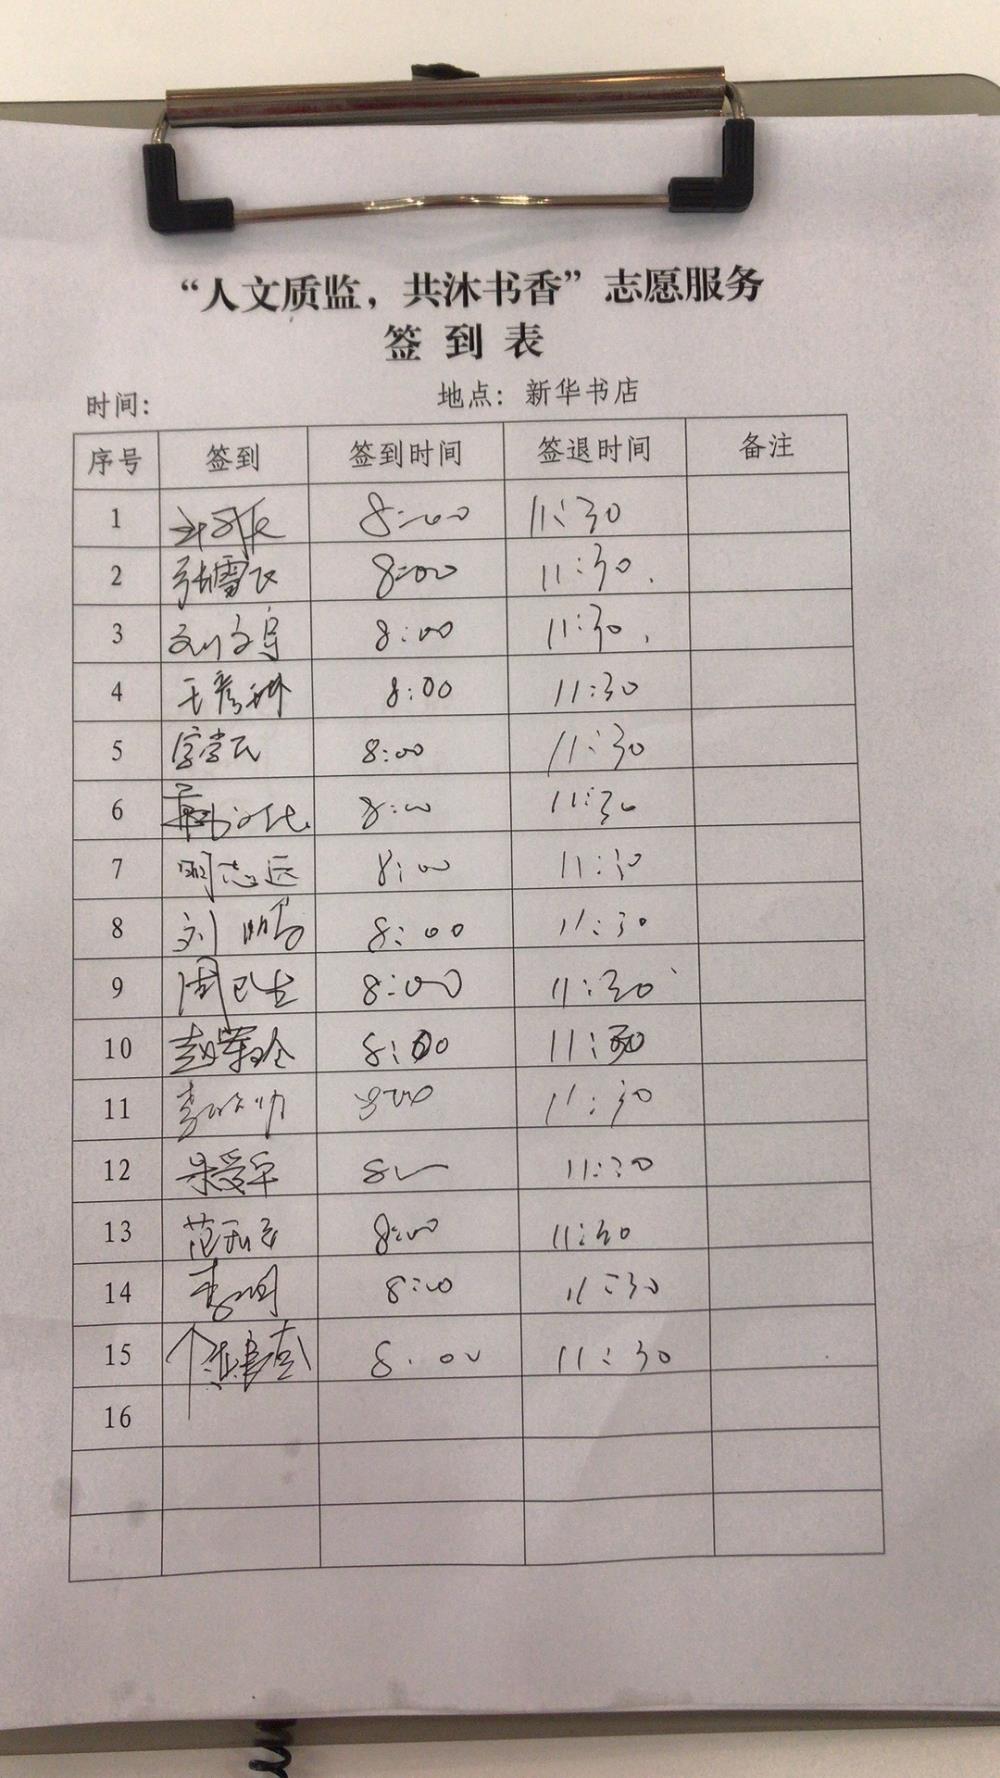 “人文质监，共沐书香”志愿服务
签 到 表
时间： 地点：新华书店
序号 签到 签到时间 签退时间 备注
1 8:00 11:30
2 张雪飞 8:00 11:30
3 刘文宇 8:00 11:30
4 王彦琳 8:00 11:30
5 8:00 11:30
6 8:00 11:30
7 明志远 8:00 11:30
8 刘鹏 8:00 11:30
9 周卫生 8:00 11:30
10 8:00 11:30
11 8:00 11:30
12 11:30
13 8:00 11:30
14 李明 8:00 11:30
15 8:00 11:30
16